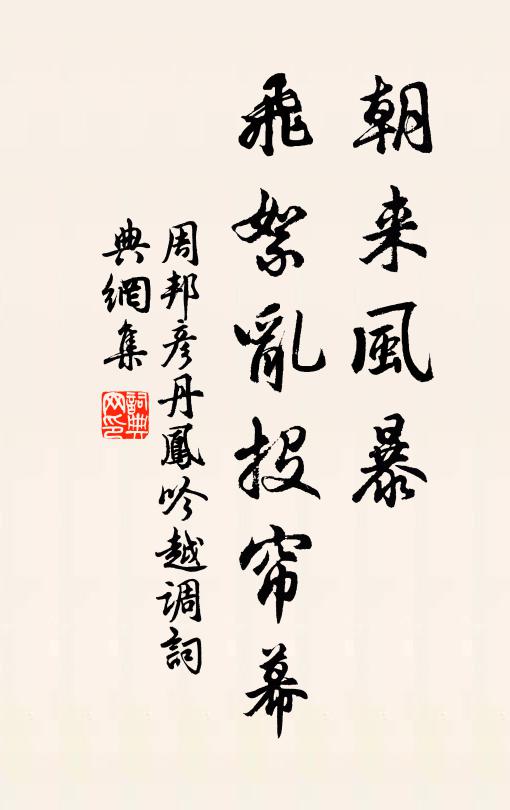 朝来風暴
飛絮亂投帘幕
周邦彦丹鳳吟越调詞
典網集
詞典网印